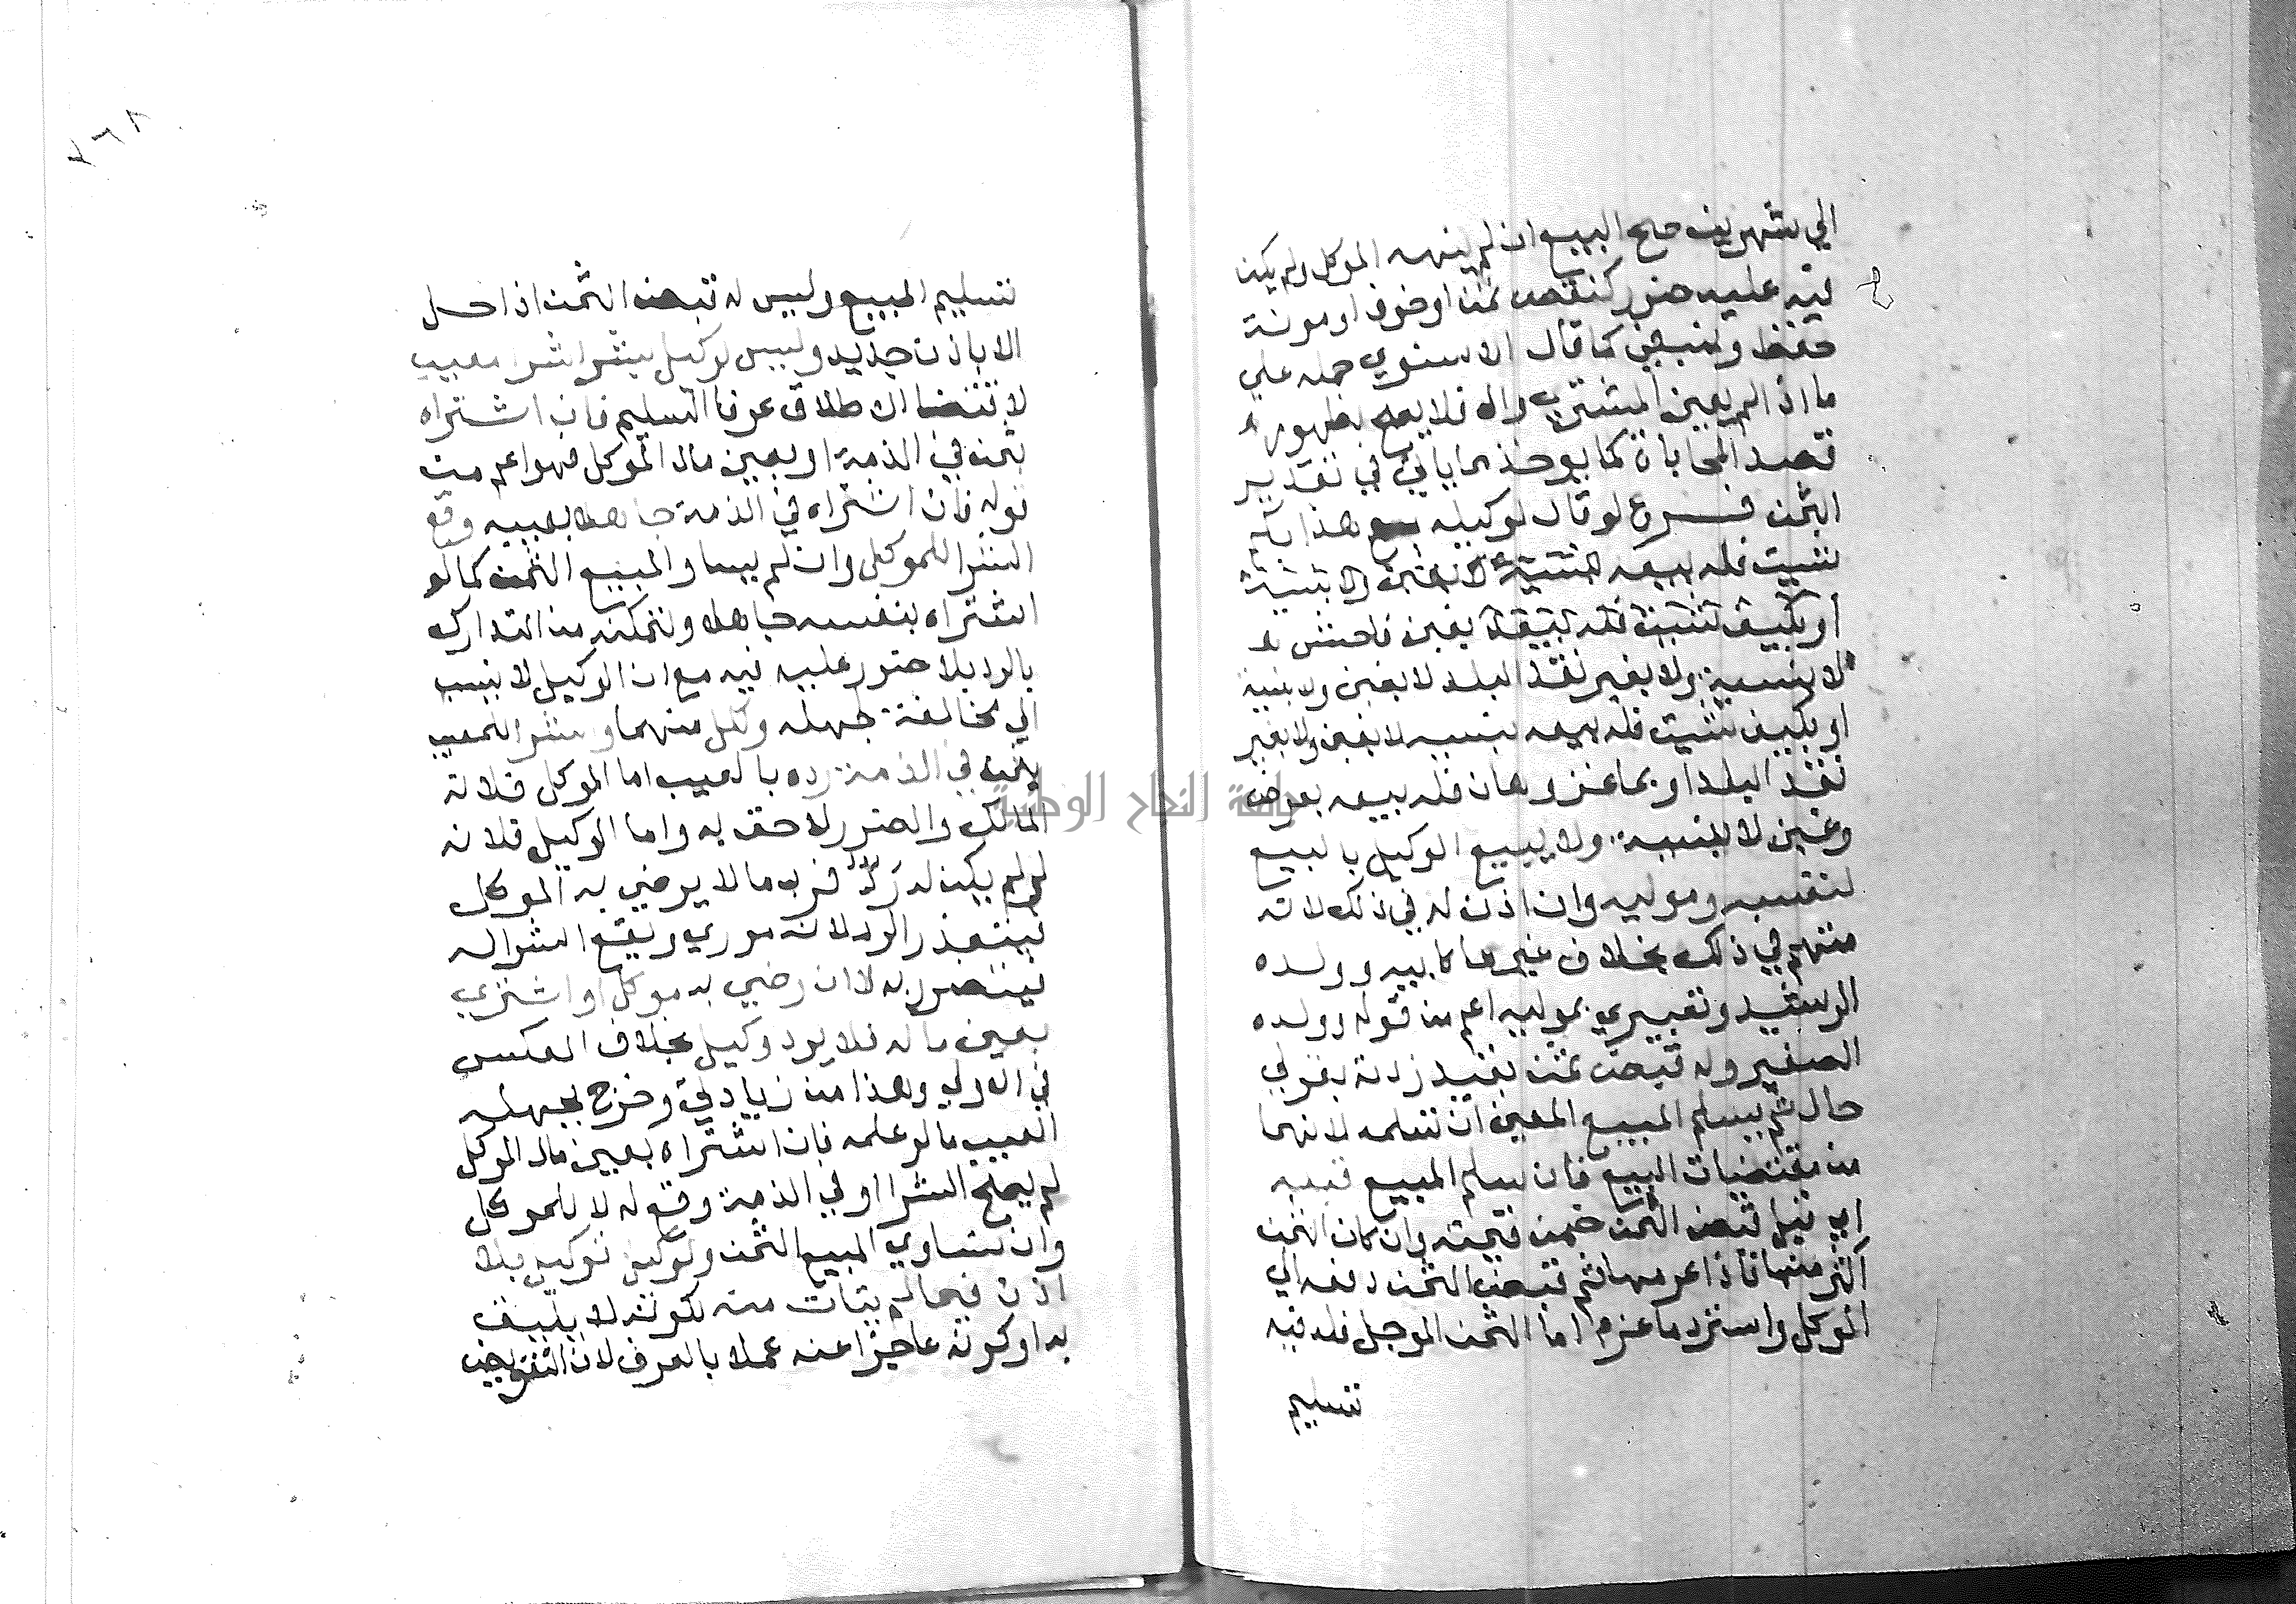 الي شهرين صح البيع ان لم ينهه الموكل ولم يكن
فيه عليه ضرر كنقص ثمن او خوف او مونة
حفظ وينبغي كما قال الاسنوي حمله علي
ما اذا لم يعين المشتري والا فلا يصح لظهور
قصد المحاباة كما يوخذ مما ياتي في تقدير
الثمن فرع لو قال لوكيله بع هذا بكم
شيت فله بيعه بغبن لا بنسيئة
او بما شيت فله بيعه بغبن فاحش
لا بنسية ولا بغير نقد البلد لا بغبن ولا بنسية
او بكيف شيت فله بيعه بنسيه لا بغبن ولا بغير
نقد البلد او بما عز وهان فله بيعه بعرض
وغبن لا بنسية ولا يبيع الوكيل بالبيع
لنفسه وموليه وان اذن له في ذلك لانه
متهم في ذلك بخلاف غيرهما كابيه وولده
الرشيد وتعبيري بموليه اعم من قوله وولده
الصغير وله قبض ثمن بقيد زدته بقولي
حال ثم يسلم المبيع المعين ان تسلمه لانهما
من مقتضيات البيع فان سلم المبيع قبله
اي قبل قبض الثمن ضمن قيمته وان كان الثمن
اكثر منها فاذا غرمها ثم قبض الثمن دفعه الي
الموكل واسترد ما غرم اما الثمن الموجل فله فيه
تسليم
٢٦٨
تسليم المبيع وليس له قبض الثمن اذا حل
الا باذن جديد وليس لوكيل بشرا شرا معيب
لاقتضا الاطلاق عرفا السليم فان اشتراه
بثمن في الذمة او بعين مال الموكل فهو اعم من
قوله فان اشتراه في الذمة جاهلا بعيبه وقع
الشرا للموكل وان لم يساو المبيع الثمن كما لو
اشتراه بنفسه جاهلا ولتمكنه من التدارك
بالرد بلا ضرر عليه فيه مع ان الوكيل لا ينسب
الي مخالفة لجهله ولكل منهما والشرا للمعيب
بثمن في الذمة رده بالعيب اما الموكل فلانه
المالك والضرر لاحق به واما الوكيل فلانه
لو لم يكن له رد فرب ما لا يرضي به الموكل
فيتعذر الرد لانه فوري ويقع الشرا له
فيتضرر به لا ان رضي به موكل او اشتري
بعين ماله فلا يرد وكيل بخلاف العكس
في الاولي وهذا من زيادتي وخرج بجهله
العيب ما لو علمه فان اشتراه بعين مال الموكل
لم يصح الشرا او في الذمة وقع له لا للموكل
وان تساوي المبيع الثمن ولوكيل توكيل بلا
اذن فيما لم يتات منه لكونه لا يليق
به او كونه عاجزا عنه عملا بالعرف لان التفويض
جامعة النجاح الوطنية